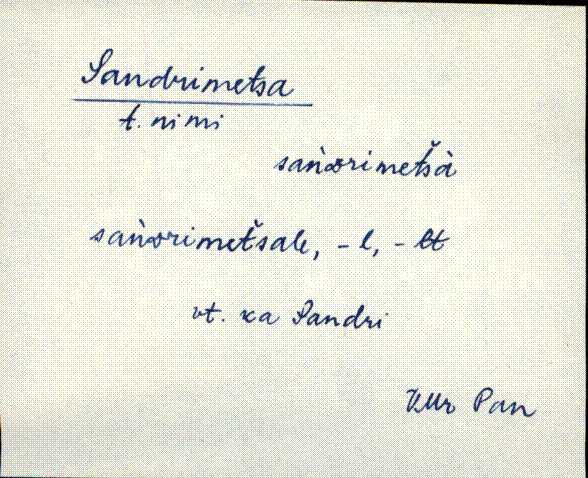 Sandrimetsa
t. nimi
sandrimetšà
sandrimetšale, -l, -lt
vt. ka Sandri
KMr Pan